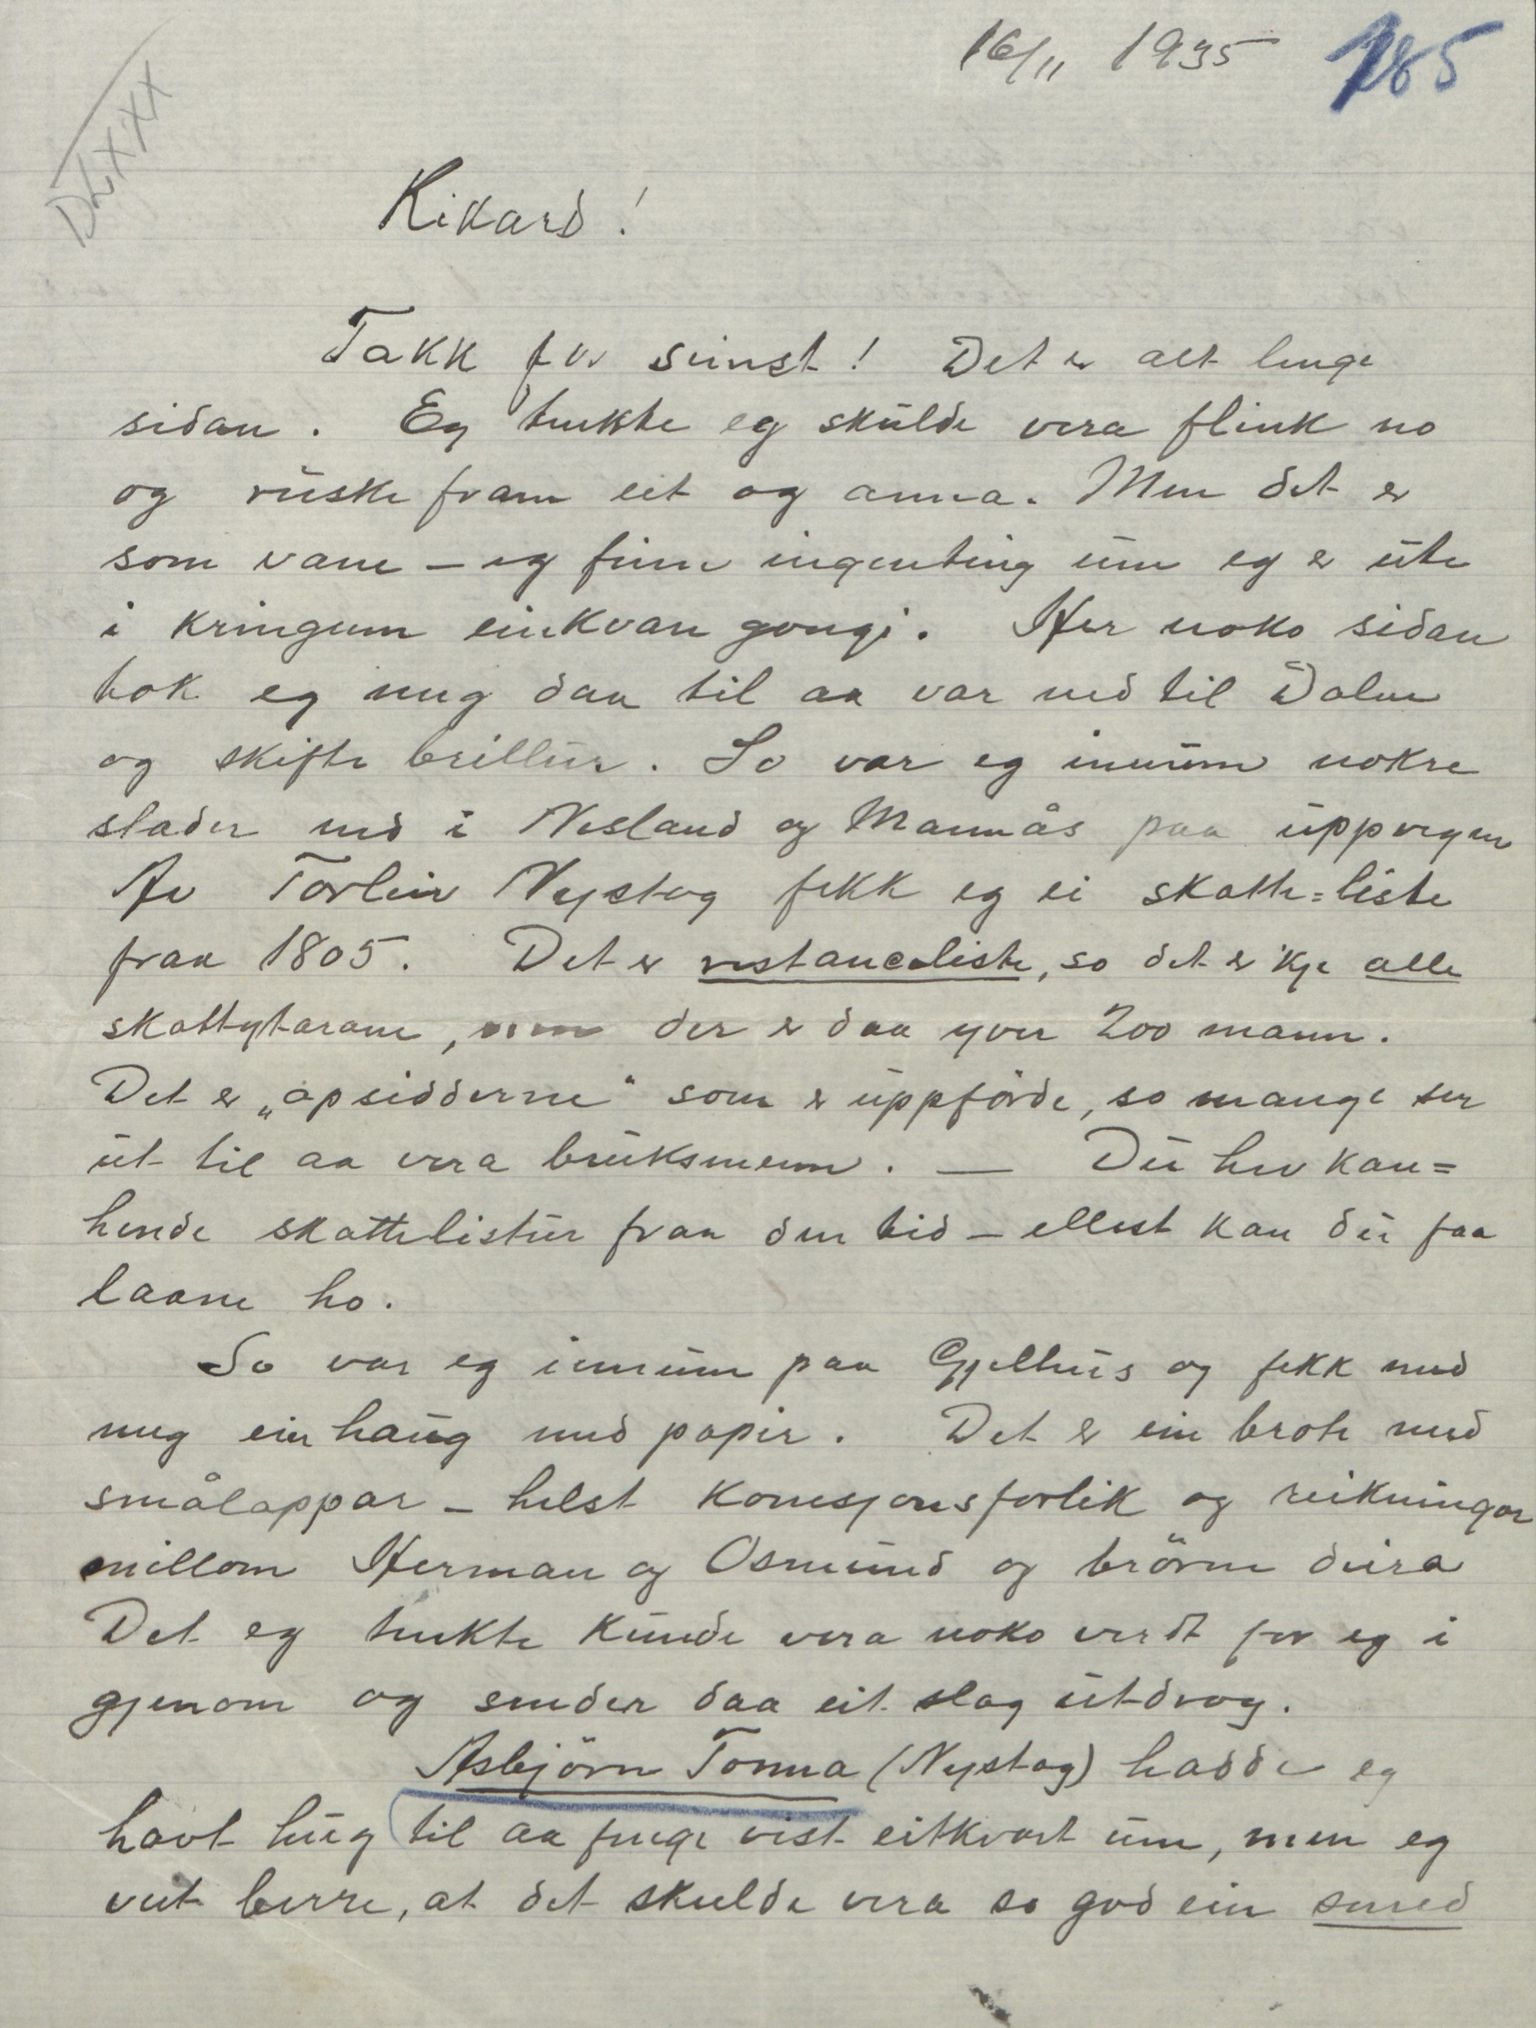 16/11 1935 185
DLXXX
Rikard!
Takk for seinst! Det er alt lenge
sidan. Eg tenkte eg skulde vera flink no
og ruske fram eit og anna. Men det er
som vane – eg finn ingenting um eg er ute
i kringum einkvan gongi. Her noko sidan
tok eg meg daa til aa var ned til Dalen
og skifte brillur. So var eg innum nokre
stader ned i Nesland og Mannås paa uppvegen
Av Torleiv Nystog fekk eg ei skatte=liste
fraa 1805. Det er restanceliste, so det er 'kje alle
skattytarane, men der er daa yver 200 mann.
Det er „opsidderne" som er uppförde, so mange ser
ut til aa vera bruksmenn. — Du hev kan=
hende skattelistur fraa den tid – ellest kan du faa
laane ho.
So var eg innum paa Gjelhus og fekk med
meg ein haug med papir. Det er ein brote med
smålappar – helst konesjonsforlik og reikningar
millom Herman og Osmund og brörne deira
Det eg tenkte kunde vera noko verdt for eg i
gjenom og sender daa eit slag utdrag.
Asbjörn Tonna (Nystog) hadde eg
havt hug til aa fenge vist eitkvart um, men eg
veit berre, at det skulde vera so god ein smed